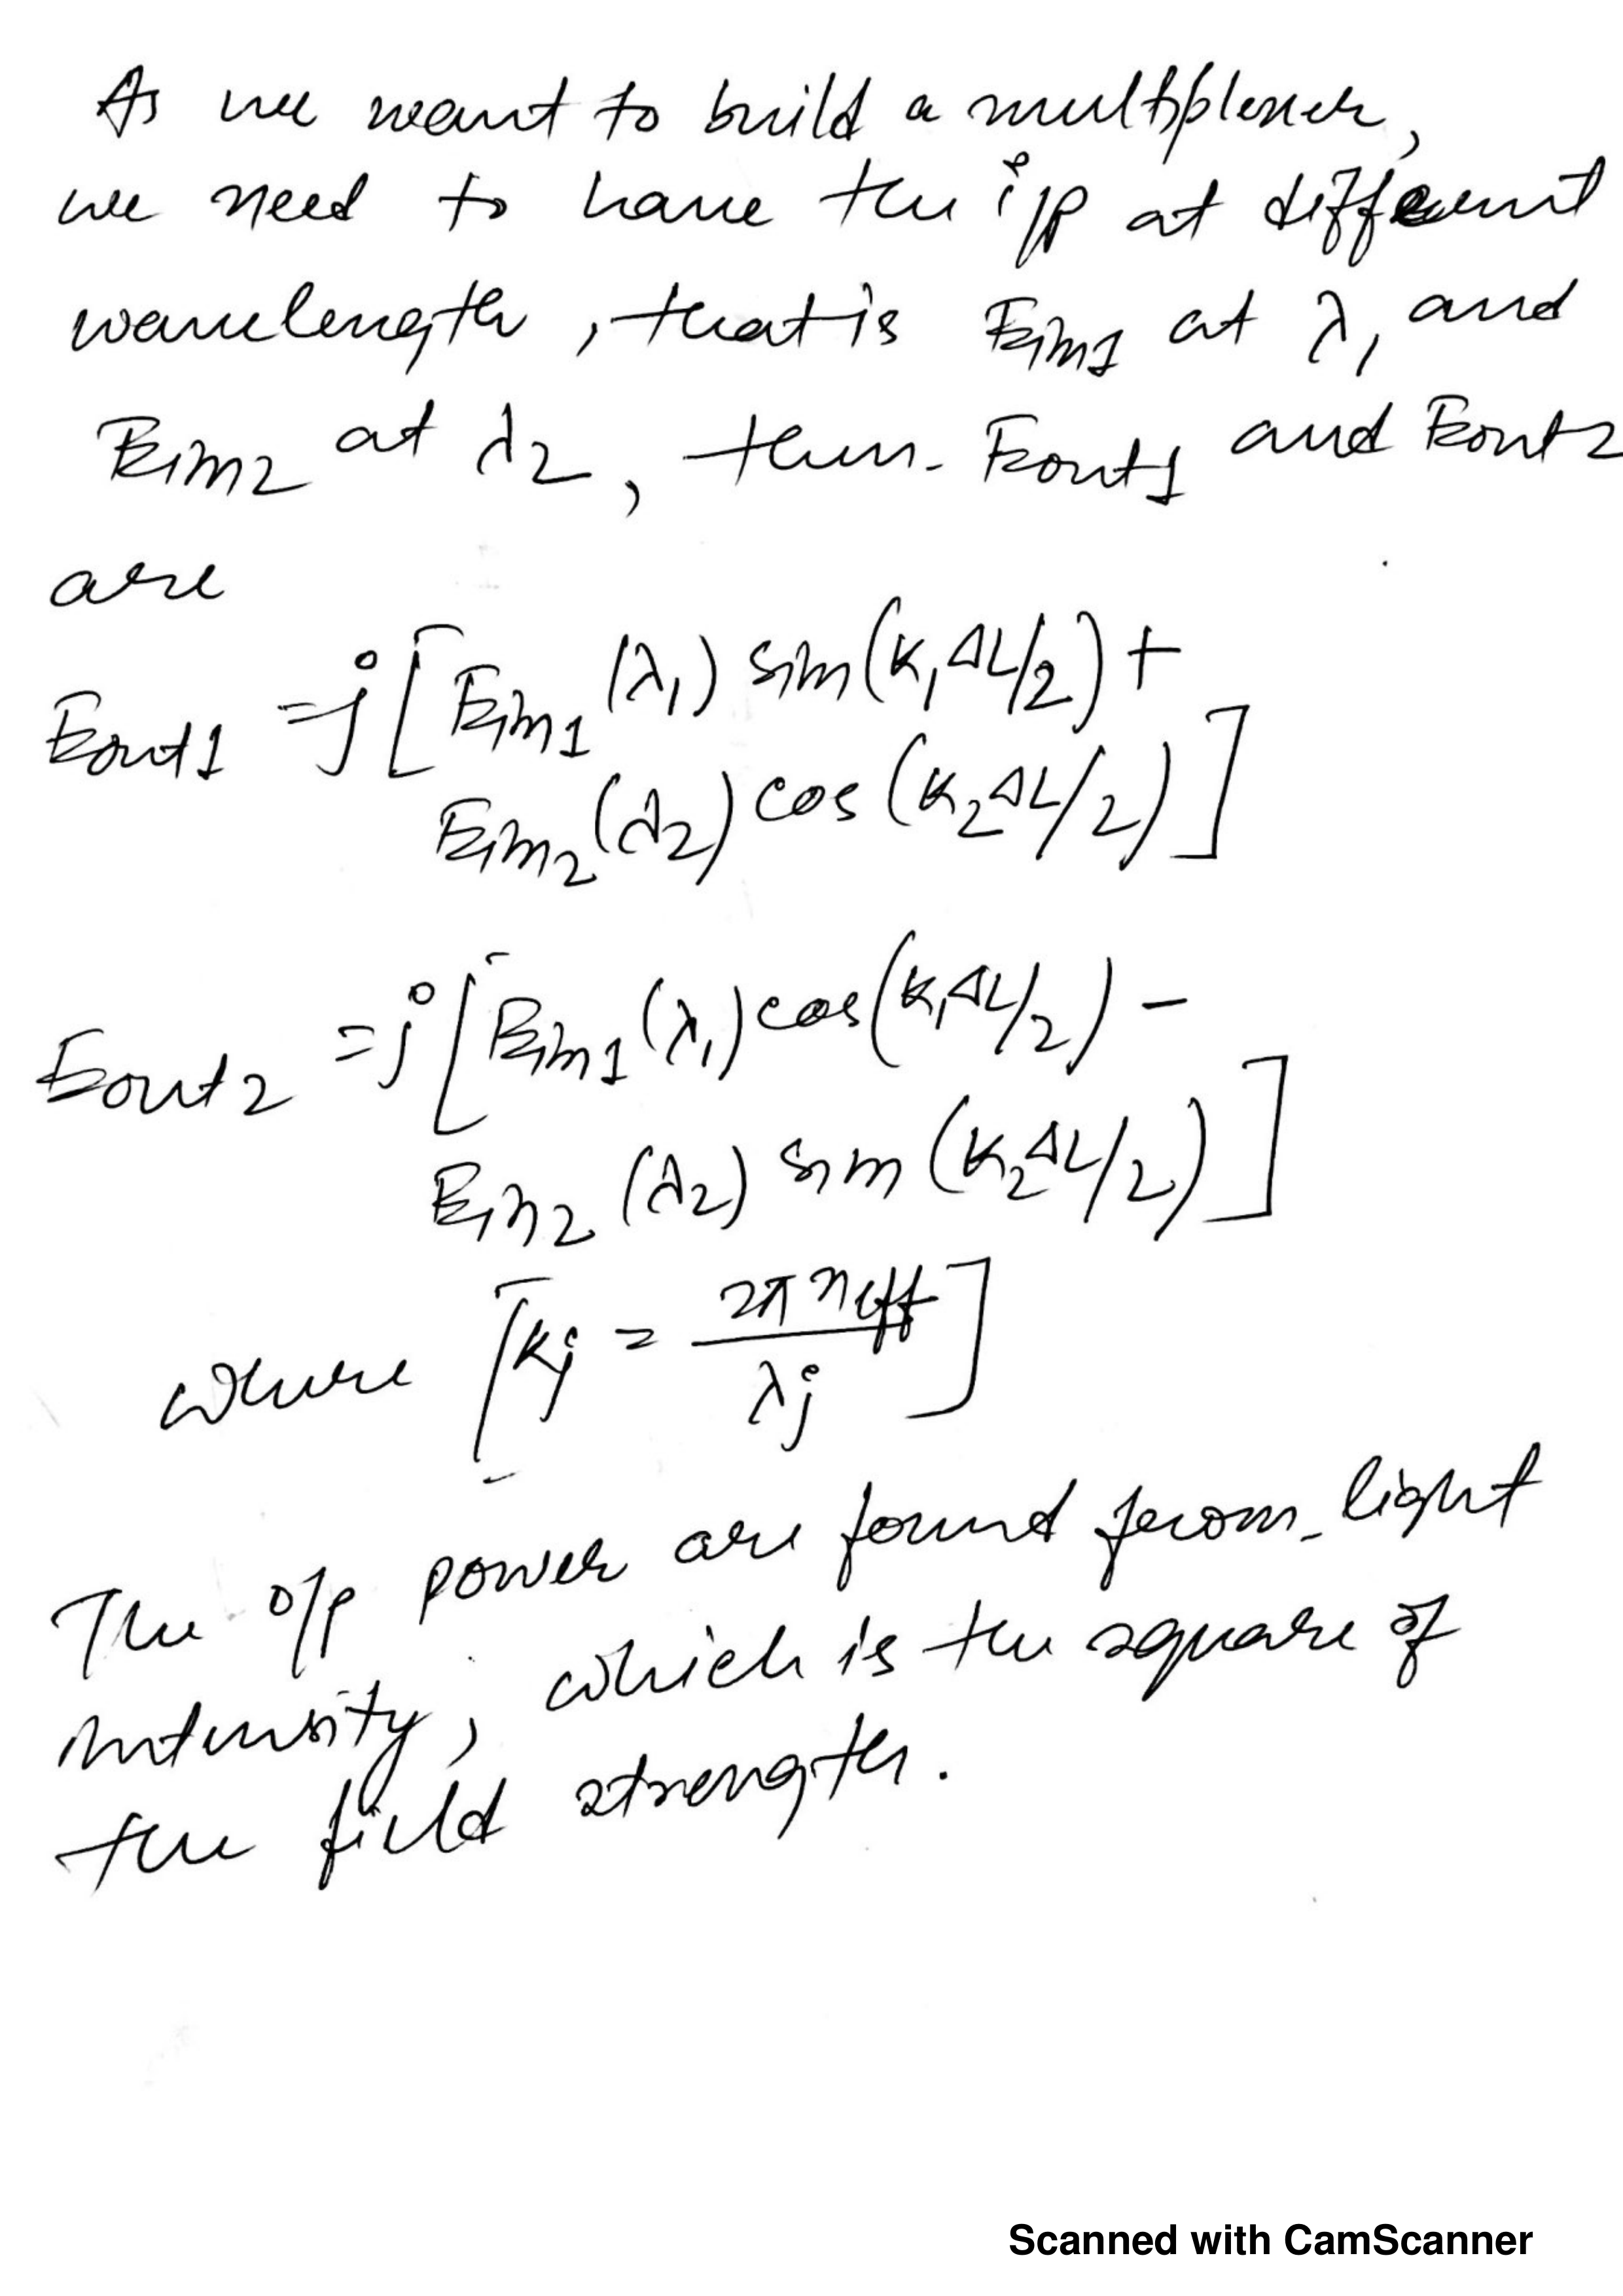 As we want to build a multiplexer,
we need to have the i/p at different
wavelength, that is Ein1 at λ1 and
Ein2 at λ2, then Eout1 and Eout2
are
Eout1 = j[Ein1 (λ1) sin(k1ΔL/2) +
Ein2(λ2) cos (k2ΔL/2)]
Eout2 = j[Ein1(λ1) cos(k1ΔL/2) -
Ein2 (λ2) sin (k2ΔL/2)]
where [kj = 2π neff / λj]
The o/p power are found from light
intensity, which is the square of
the field strength.
Scanned with CamScanner